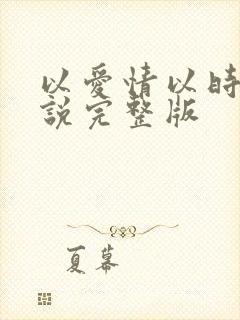 以愛情以時
說完整版
夏幕